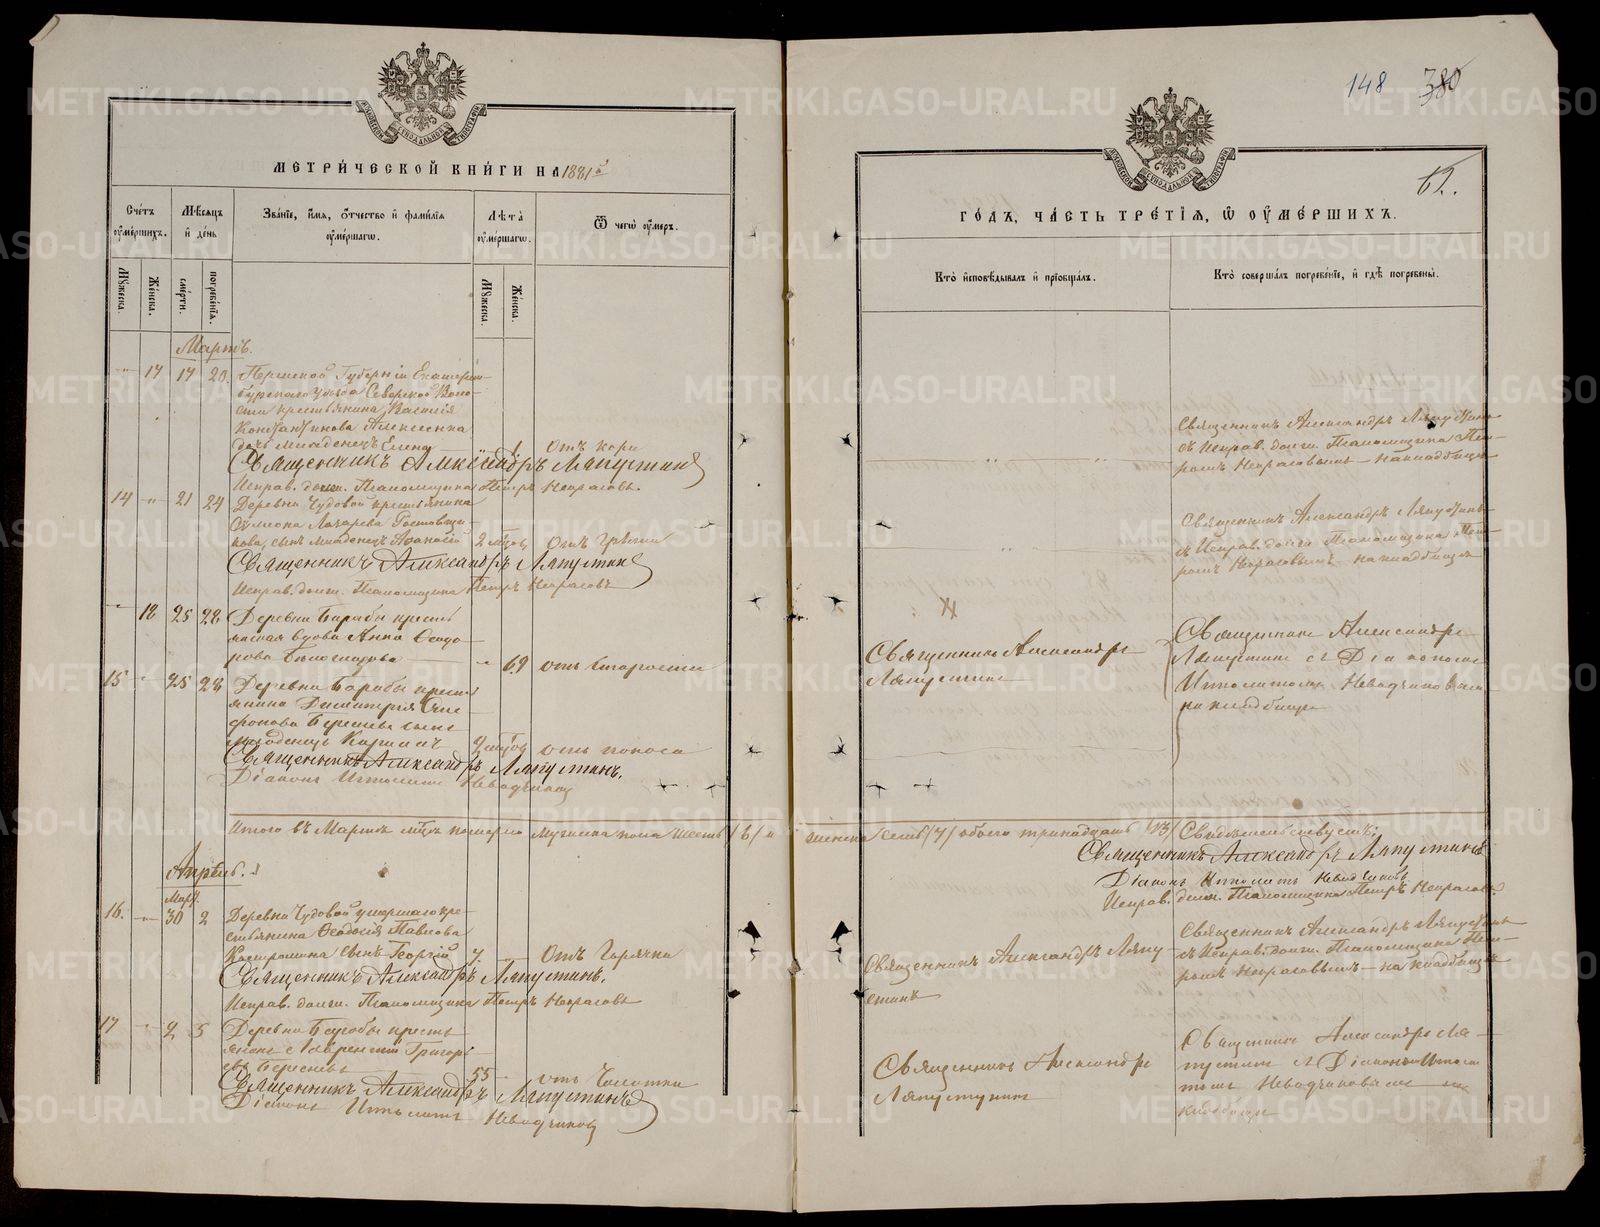 МЕТРИ́ЧЕСКОЙ КНИ́ГИ НА 1881й
Счéтъ ѹ҆мéршихъ.
Мѣ́сяцъ и҆ дéнь
Звáнїе, и҆́мя, ѻ҆́тчество и҆ фами́лїя ѹ҆мéршагѡ.
Лѣ́та ѹ҆мéршагѡ.
Ѿ чегѡ̀ ѹ҆́меръ.
Мꙋ́жеска.
Жéнска.
смéрти.
погребéнїя.
Мꙋ́жеска.
Жéнска.
Мартъ.
" 17 17 20. Пермской Губернiи Екатерин-
бургскаго уѣзда Северской Воло-
сти крестьянина Василiя
Константинова Алексеенка
дочь младенецъ Елена 1 Отъ кори
Священникъ Александръ Ляпустинъ
Исправ. долж. Псаломщика Петръ Некрасовъ.
14 " 21 24 Деревни Чудовой крестьянина
Симеона Лазарева Ростовщи-
кова, сынъ младенецъ Афанасiй 2 мѣсц. Отъ
Священникъ Александръ Ляпустинъ
Исправ. долж. Псаломщика Петръ Некрасовъ
" 18 25 28 Деревни Барабы кресть
янская вдова Анна Феодо-
рова " 69 отъ старости
15 " 25 28 Деревни Барабы кресть
янина Димитрiя
Береснева сынъ
младенецъ 2 мѣсц отъ поноса
Священникъ Александръ Ляпустинъ.
Дiаконъ Ипполитъ Неводчиковъ
Итого въ Мартѣ мѣсц. померло мужеска пола шесть /6/ и
Апрѣль.
Март.
16. " 30 2 Деревни Чудовой умершаго кре-
стьянина Феодосiя Павлова
сынъ Георгiй 7. Отъ Горячки
Священникъ Александръ Ляпустинъ.
Исправ. долж. Псаломщика Петръ Некрасовъ
17 " 2 5 Деревни Барабы кресть-
янинъ Лаврентiй Григорь-
евъ Бересневъ 55 отъ Чахотки
Священникъ Александръ Ляпустинъ
Дiаконъ Ипполитъ Неводчиковъ
148 380
62.
ГÓДЪ, ЧÁСТЬ ТРÉТЇЯ, Ѡ҆ ѸМÉРШИХЪ.
Ктò и҆сповѣ́дывалъ и҆ прїѻбщáлъ.
Ктò совершáлъ погребéнїе, и҆ гдѣ̀ погребены̀.
" "
Священникъ Александръ Ляпустинъ
съ Исправ. долж. Псаломщика Пет-
ромъ Некрасовымъ на кладбищѣ
" "
Священникъ Александръ Ляпустинъ
съ Исправ. долж. Псаломщика Пет-
ромъ Некрасовымъ на кладбищѣ
Священникъ Александръ
Ляпустинъ
Священникъ Александръ
Ляпустинъ съ Дiакономъ
Ипполитомъ Неводчиковымъ
на кладбищѣ
женска /семь/ 7/ обоего тринадцать /13/ Свидѣтельствуетъ:
Священникъ Александръ Ляпустинъ
Дiаконъ Ипполитъ Неводчиковъ
Исправ. долж. Псаломщика Петръ Некрасовъ
Священникъ Александръ Ляпу-
стинъ
Священникъ Александръ Ляпустинъ
съ Исправ. долж. Псаломщика Пет-
ромъ Некрасовымъ на кладбищѣ
Священникъ Александръ
Ляпустинъ
Священникъ Александръ Ля-
пустинъ съ Дiакономъ Иппол-
томъ Неводчиковымъ на
кладбищѣ